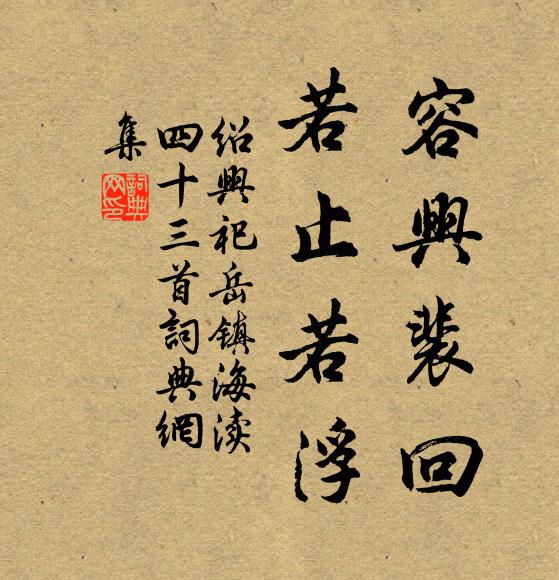 容興裴回
若止若浮
紹興祀岳鎮海渎
四十三首詞典網
集
詞典網印